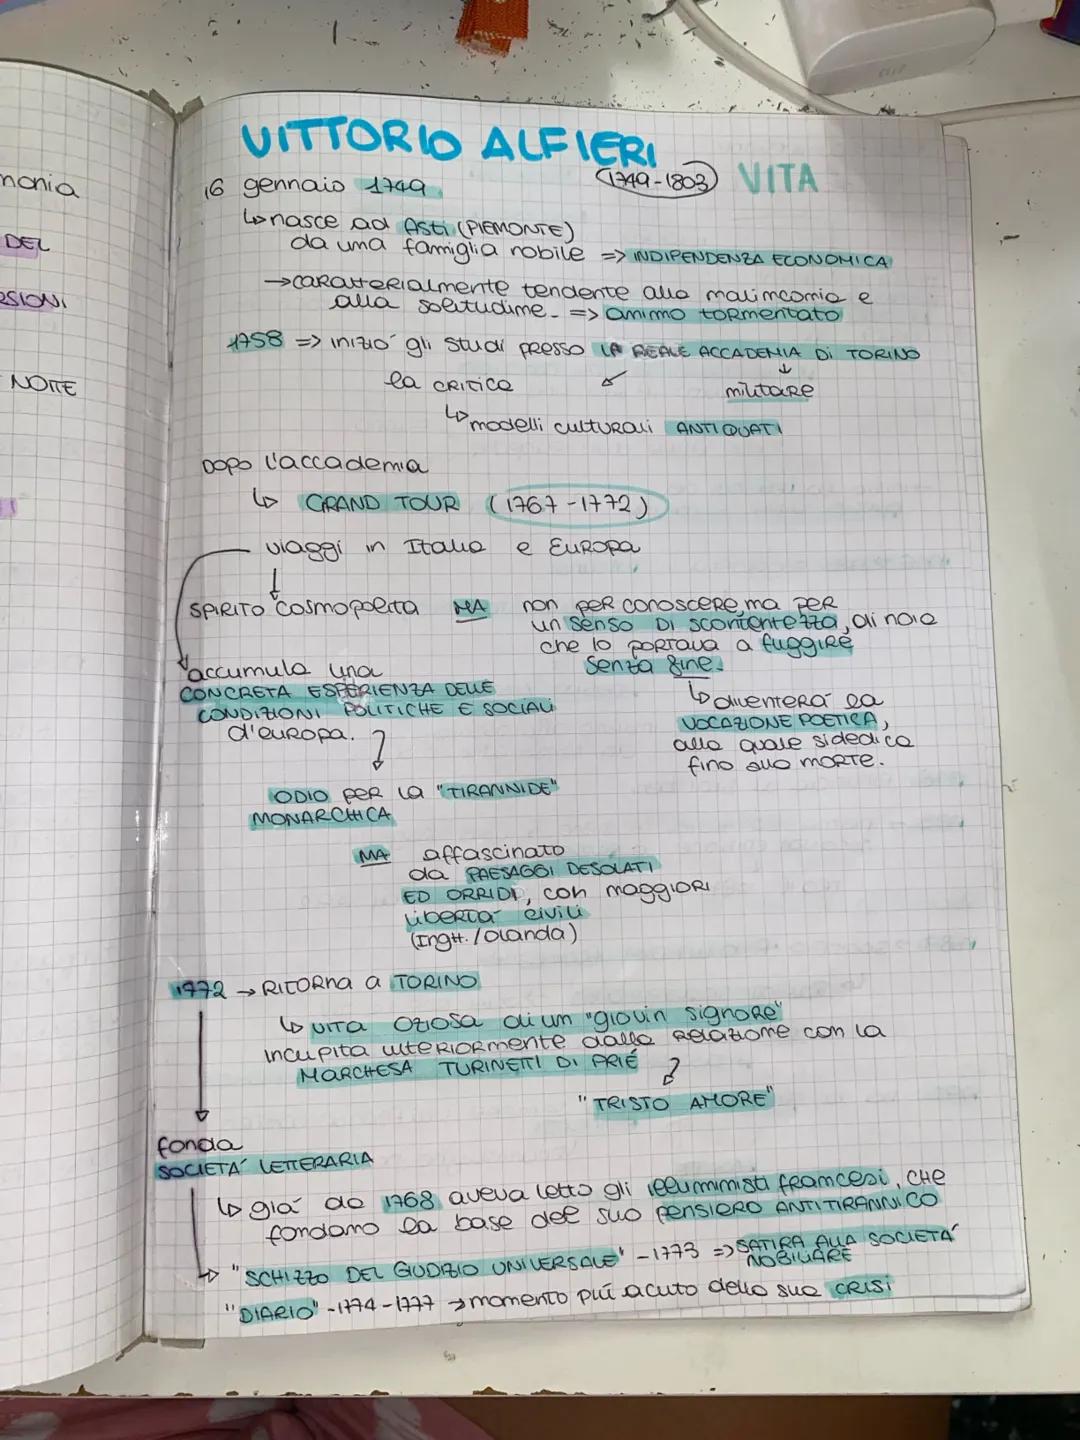 monia
DEL
NOTTE
VITTORIO ALFIERI
(1749-1803) VITA
16 gennaio 1749
↳ nasce ad Asti (PIEMONTE)
da una famiglia nobile => INDIPENDENZA ECONOMICA
→ caratterialmente tendente alla malinconia e
alla solitudine. => animo tormentato
1758 => iniziò gli studi presso LA REALE ACCADEMIA DI TORINO
la critica
militare
↳ modelli culturali ANTIQUATI
Dopo l'accademia
↳ GRAND TOUR (1767-1772)
viaggi in Italia e Europa
SPIRITO cosmopolita MA non per conoscere, ma per
un senso di scontentezza, di noia
che lo portava a fuggire
senza fine.
accumula una
CONCRETA ESPERIENZA DELLE
CONDIZIONI POLITICHE E SOCIALI
d'europa.
↳ diventerà la
VOCAZIONE POETICA,
alla quale si dedica
fino alla morte.
ODIO per la "TIRANNIDE"
MONARCHICA
MA affascinato
da PAESAGGI DESOLATI
ED ORRIDI, con maggiori
libertà civili
(Inght./olanda)
1772 → Ritorna a TORINO
↳ vita oziosa di un "giovin signore"
incupita ulteriormente dalla relazione con la
MARCHESA TURINETTI DI PRIÉ
"TRISTO AMORE"
fonda
SOCIETÀ LETTERARIA
↳ già da 1768 aveva letto gli illuministi francesi, che
fondano la base del suo pensiero ANTITIRANNICO
↳ "SCHIZZO DEL GIUDIZIO UNIVERSALE" -1773 => SATIRA ALLA SOCIETÀ
NOBILIARE
"DIARIO" -1774-1777 → momento più acuto della sua CRISI